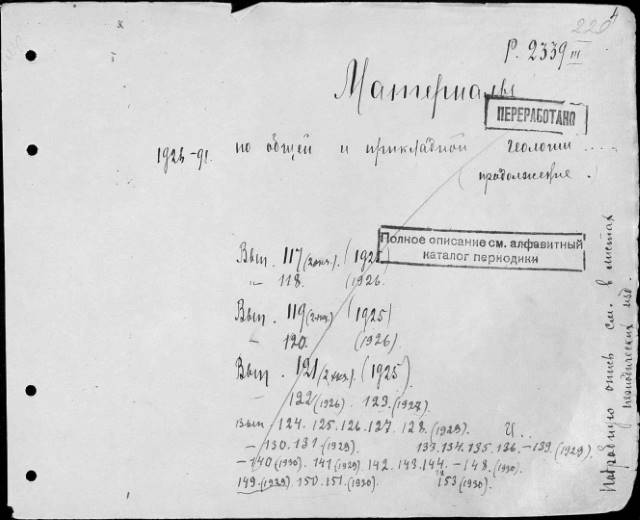 220
4
Р. 2339 III
Материалы
ПЕРЕРАБОТАНО
1923-91. по общей и прикладной геологии ....
(продолжение.)
Полное описание см. алфавитный
каталог периодики
Вып. 117 (2 экз.). (1925
" - 118. (1926.
Вып. 119 (2 экз.) (1925)
- 120. (1926)
Вып. 121 (2 экз.). (1925).
122 (1926). 123. (1927).
Вып 124. 125. 126. 127. 128. (1929).
- 130. 131 (1929). 133. 134. 135. 136. - 139. (1929).
- 140 (1930). 141 (1929) 142. 143. 144. - 148. (1930).
149. (1929). 150. 151. (1930). 153 (1930).
Подробную опись см. в листах
периодических изд.